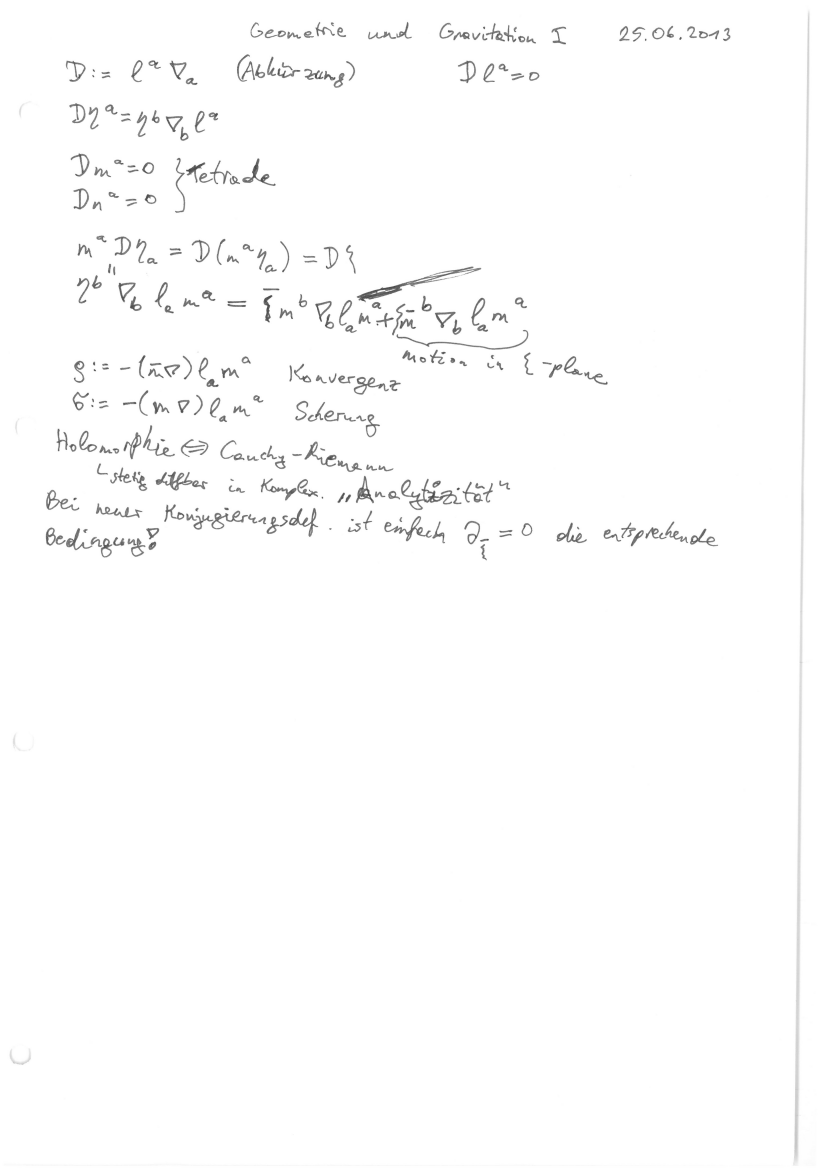 Geometrie und Gravitation I 25.06.2013
D := lᵃ ∇ₐ (Abkürzung) D lᵃ = 0
Dηᵃ = ηᵇ ∇_b lᵃ
Dmᵃ = 0 } Tetrade
Dnᵃ = 0
mᵃ Dηₐ = D(mᵃηₐ) = Dξ
ηᵇ ∇_b lₐ mᵃ = ξ̄ mᵇ ∇_b lₐ mᵃ + ξ m̄ᵇ ∇_b lₐ mᵃ
motion in ξ-plane
ρ := -(m̄∇) lₐ mᵃ Konvergenz
σ := -(m∇) lₐ mᵃ Scherung
Holomorphie ⇔ Cauchy-Riemann
stetig diffbar in Komplex. „Analytizität“
Bei neuer Konjugierungsdef. ist einfach ∂_ξ̄ = 0 die entsprechende
Bedingung!